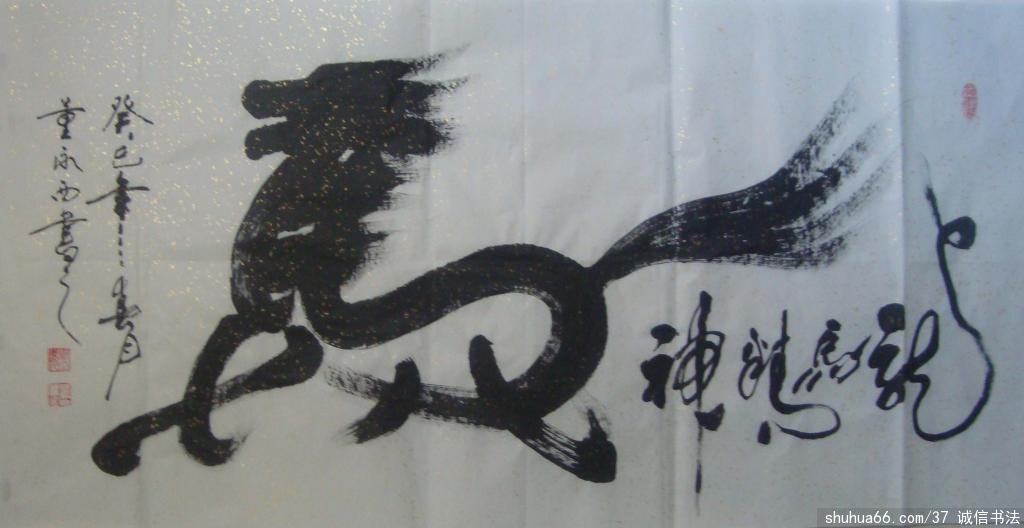 龍馬精神
馬
癸巳年春月
董永西書
shuhua66.com/37 诚信书法